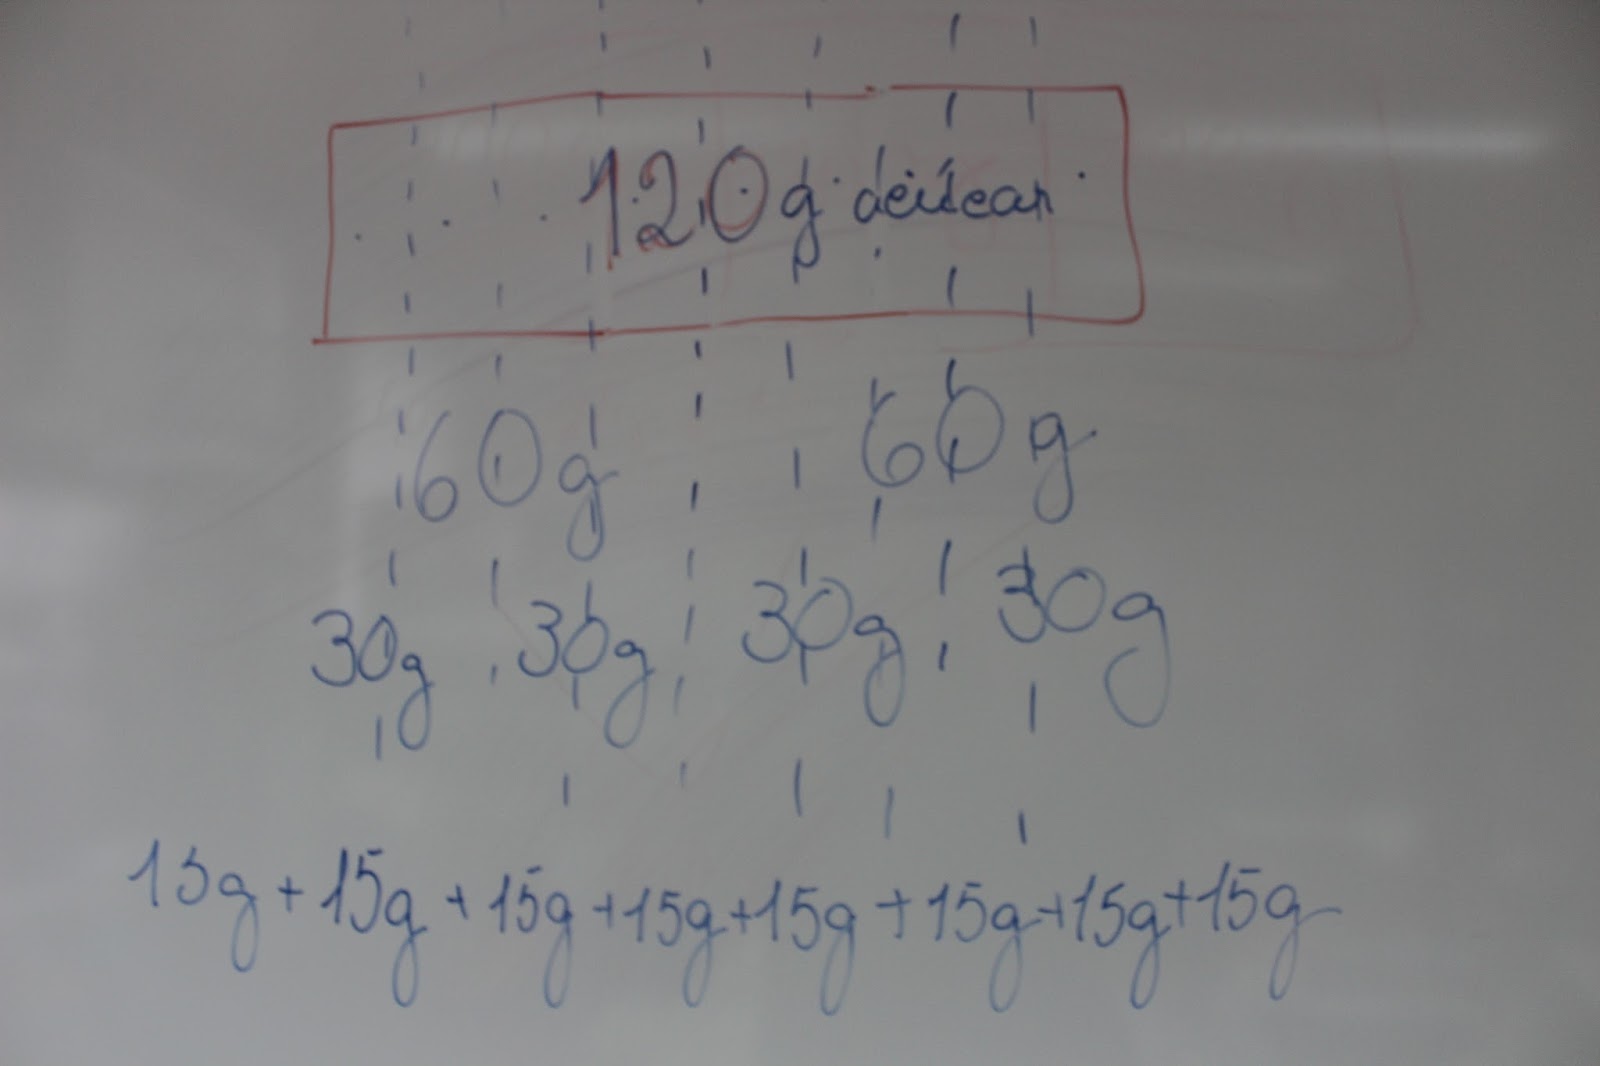 120g
60g 60g
30g 30g 30g 30g
15g + 15g + 15g + 15g + 15g + 15g + 15g + 15g